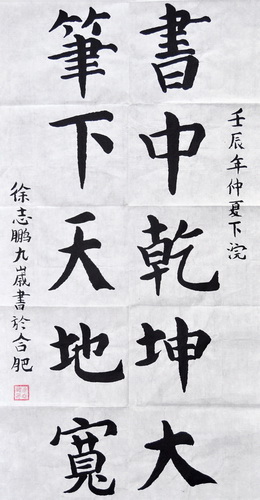 壬辰年仲夏下浣
書中乾坤大
筆下天地寬
徐志鹏九歲書於合肥